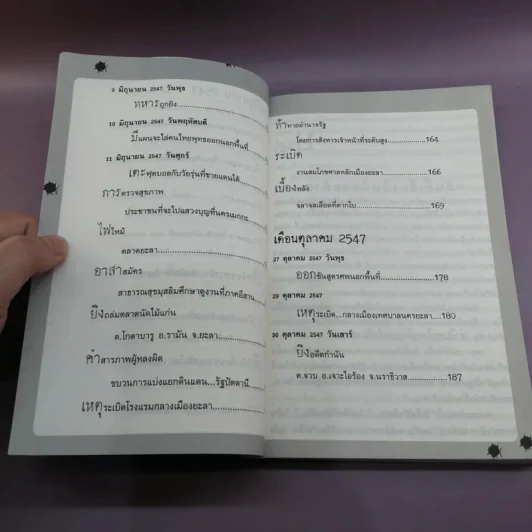 9 มิถุนายน 2547 วันพุธ
ทหารถูกยิง
10 มิถุนายน 2547 วันพฤหัสบดี
มีแผนจะไล่คนไทยพุทธออกนอกพื้นที่
11 มิถุนายน 2547 วันศุกร์
เตะฟุตบอลกับวัยรุ่นที่ชายแดนใต้
การตรวจสุขภาพ
ประชาชนที่จะไปแสวงบุญที่นครเมกกะ
ไฟไหม้
ตลาดยะลา
อาสาสมัคร
สาธารณสุขมุสลิมศึกษาดูงานที่ภาคอีสาน
ยิงถล่มตลาดนัดไม้แก่น
ต.โกตาบารู อ.รามัน จ.ยะลา
คำสารภาพผู้หลงผิด
ขบวนการแบ่งแยกดินแดน...รัฐปัตตานี
เหตุระเบิดโรงแรมกลางเมืองยะลา
ท้าทายอำนาจรัฐ
โดยการสังหารเจ้าหน้าที่ระดับสูง 164
ระเบิด
งานสมโภชศาลหลักเมืองยะลา 166
เบื้องหลัง
จลาจลเลือดที่ตากใบ 169
เดือนตุลาคม 2547
27 ตุลาคม 2547 วันพุธ
ออกชันสูตรศพนอกพื้นที่ 178
28 ตุลาคม 2547
เหตุระเบิด...กลางเมืองเทศบาลนครยะลา 180
30 ตุลาคม 2547 วันเสาร์
ยิงอดีตกำนัน
ต.จวบ อ.เจาะไอร้อง จ.นราธิวาส 187